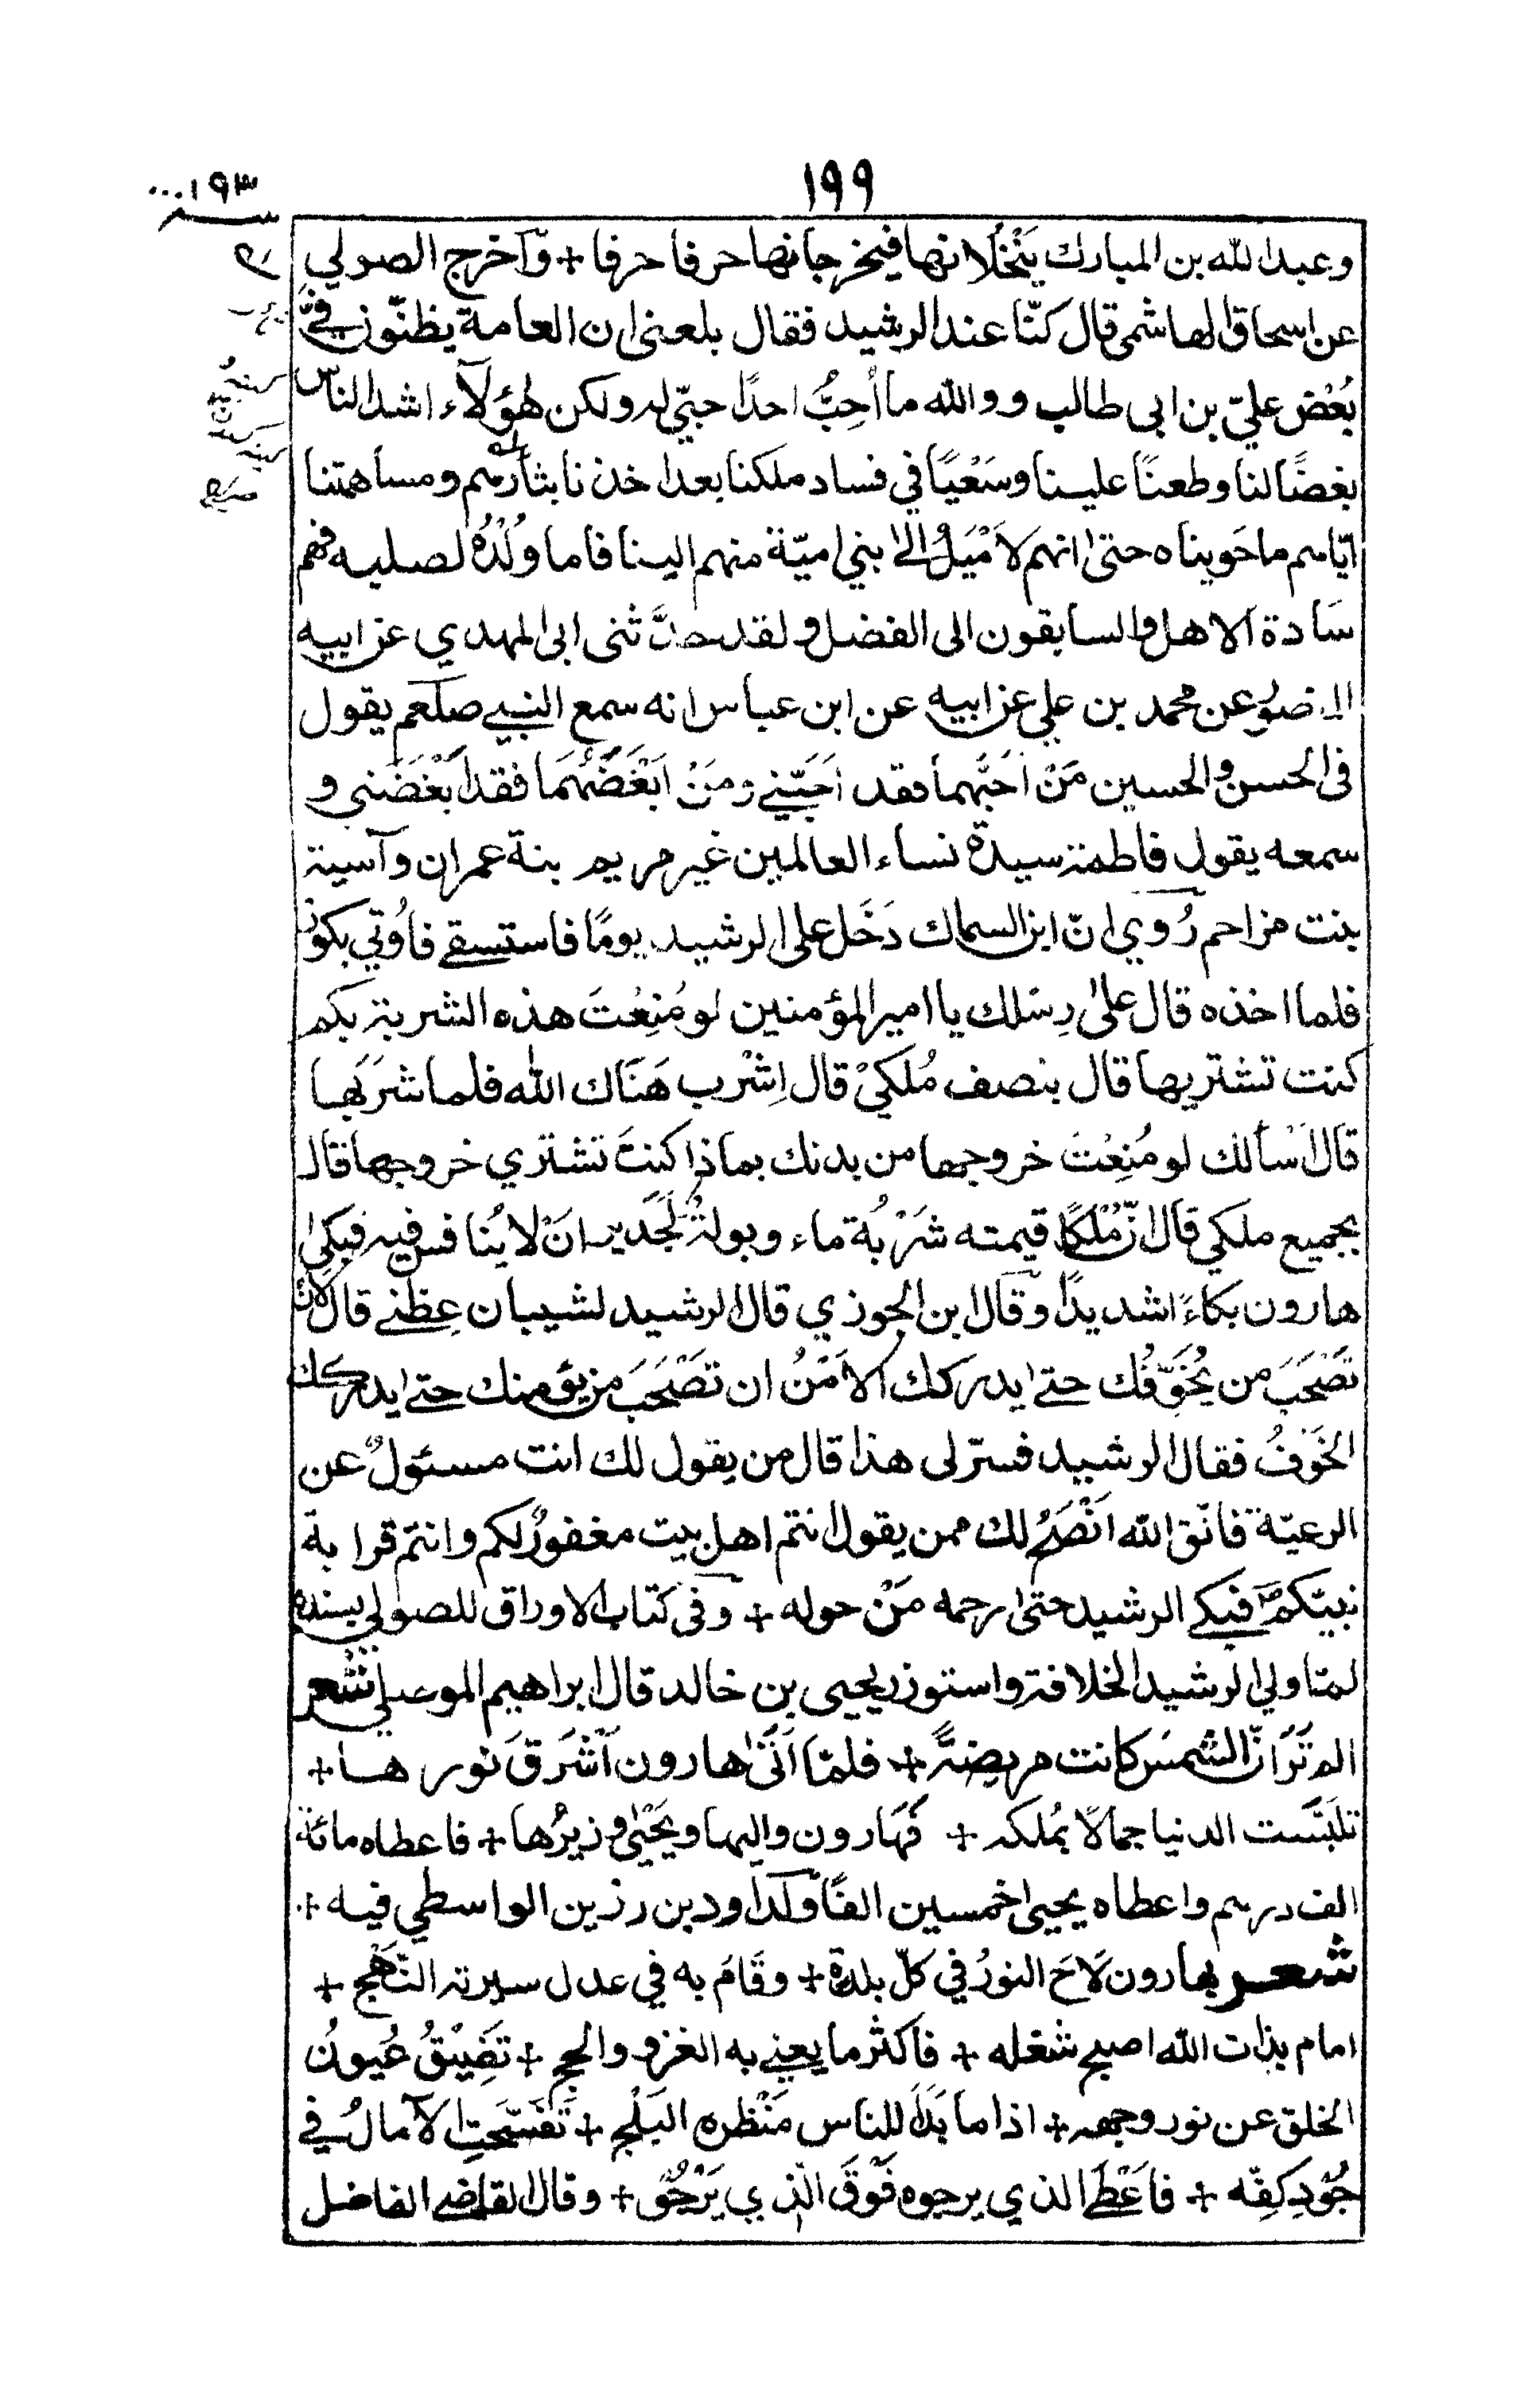 ١٩٩
١٩٣...
وعبدالله بن المبارك يَنْخُلَانها فيخرجانها حرفا حرفا + وّآخرج الصولي
عن اسحاق الهاشمي قال كنّا عند الرشيد فقال بلعنى ان العامة يظنّون فيَّ
بُغْض عليّ بن ابى طالب و والله ما اُحِبُّ احدًا حبّي له ولكن هٰؤلآء اشد الناس
بغضًا لنا وطعنًا علينا وسَعْيًا في فساد ملكنا بعد اخذنا بثأرهم ومساهمتنا
ايّاهم ما حَويناه حتىٰ انهم لاَمْيَلُ الىٰ بني اميّة منهم الينا فاما وُلْدُه لصلبه فهم
سَادة الاهل والسابقون الى الفضل ولقد حدَّثنى ابى المهدي عن ابيه
المنصور عن محمد بن علي عن ابيه عن ابن عباس انه سمع النبي صلعم يقول
فى الحسن والحسين مَنْ اَحَبَّهما فقد اَحَبّني ومَنْ اَبْغَضَهُمَا فقد اَبْغَضَني و
سمعه يقول فاطمة سيدة نساء العالمين غير مريم بنة عمران وآسية
بنت مزاحم رُوي انّ ابن السماك دَخَل على الرشيد يومًا فاستسقے فاُوتي بكوز
فلما اخذه قال علىٰ رِسْلك يا امير المؤمنين لو مُنِعْتَ هذه الشربة بكم
كنت تشتريها قال بنصف مُلكيْ قال اِشْرب هَنَاك الله فلما شرَبَها
قال اَسْألك لو مُنِعْتَ خروجها من بدنك بماذا كنتَ تشتري خروجها قال
بجميع ملكي قال انّ مُلكًا قيمته شَرْبُة ماء وبولةٌ لَجَدير انَ لا يُنافس فيه فبكىٰ
هارون بكاءً شديدًا وقال ابن الجوزي قال الرشيد لشيبان عِظنے قال لان
تَصْحَبَ من يُخَوِّفُك حتےٰ يدركك الاَمْنُ ان تَصْحَبَ من يؤمنك حتےٰ يدركك
الخَوفُ فقال الرشيد فسّر لى هذا قال من يقول لك انت مسئولٌ عن
الرعيّة فاتّق الله اَنْصَحُ لك ممن يقول انتم اهل بيت مغفورٌ لكم وانتم قرابة
نبيّكمْ فبكے الرشيد حتىٰ رحمه مَنْ حوله + وفى كتاب الاوراق للصولي بسنده
لمّا ولي الرشيد الخلافة واستوزر يحيى بن خالد قال ابراهيم الموصلي شعر
الم تَرَ انّ الشمسَ كانت مريضةً + فلمّا اَتىٰ هارون اَشْرَقَ نورها +
تلَبَّسَت الدنيا جمالاً بمُلكه + فَهَارون واليها ويَحْيٰى وزيرُها + فاعطاه مائة
الف درهم واعطاه يحيىٰ خمسين الفًا وَلداود بن رزين الواسطي فيه +
شعر بهارون لاَحَ النورُ في كلّ بلدة + وقَامَ به في عدل سيرته النَّهْج +
امام بذات الله اصبح شغله + فاكثر ما يعنے به الغزو والحج + تَضِيْقُ عُيونُ
الخلق عن نور وجهه + اذا ما بَدَا للناس مَنْظره البَلْج + تَفَسّحَتِ الآمالُ في
جُوْدِ كفِّه + فاَعْطَے الذي يرجوه فَوْقَ الّذي يَرْجُوْ + وقال القاضے الفاضل